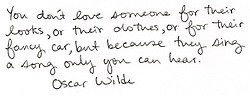 You don't love someone for their
looks, or their clothes, or for their
fancy car, but because they sing
a song only you can hear.
Oscar Wilde